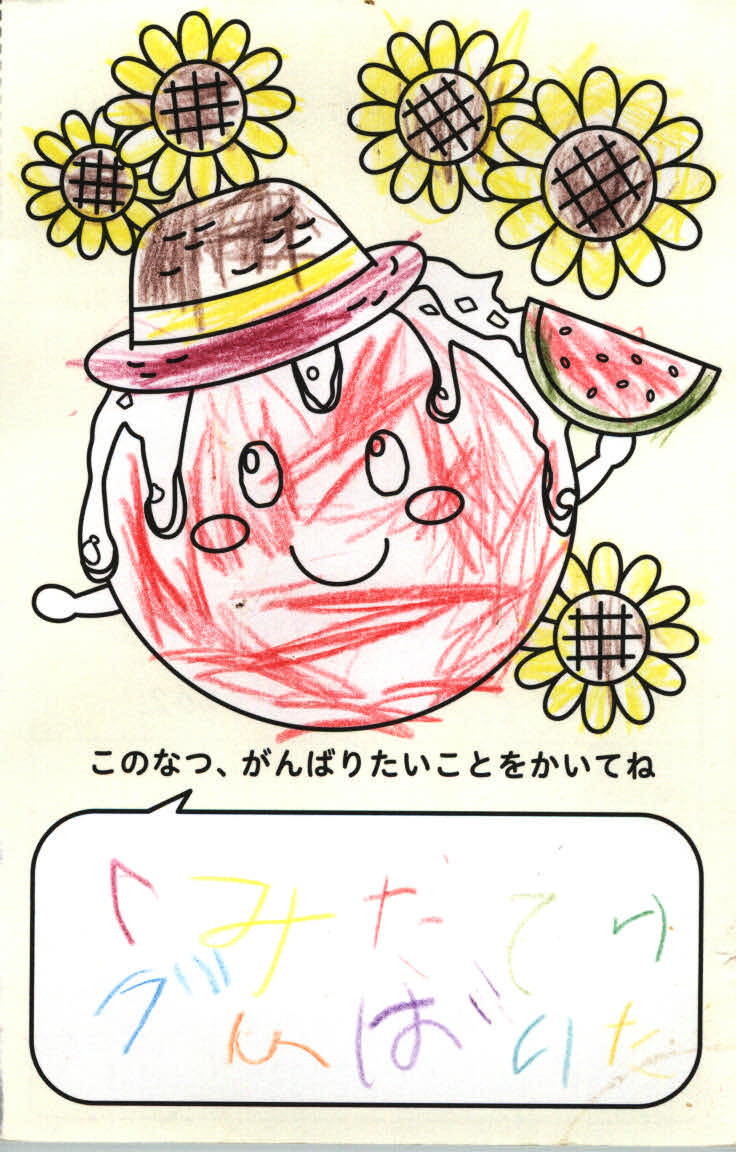 このなつ、がんばりたいことをかいてね
くみたてり
がんばりた